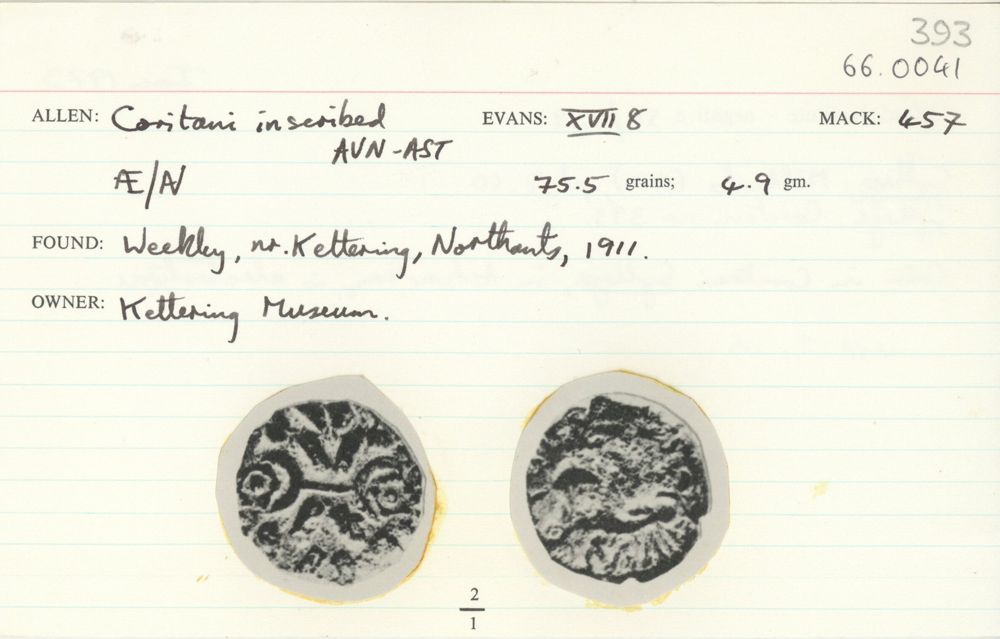 393
66.0041
ALLEN: Coritani inscribed EVANS: XVII 8 MACK: 457
AVN-AST
Æ/AV 75.5 grains; 4.9 gm.
FOUND: Weekley, nr. Kettering, Northants, 1911.
OWNER: Kettering Museum.
2
1